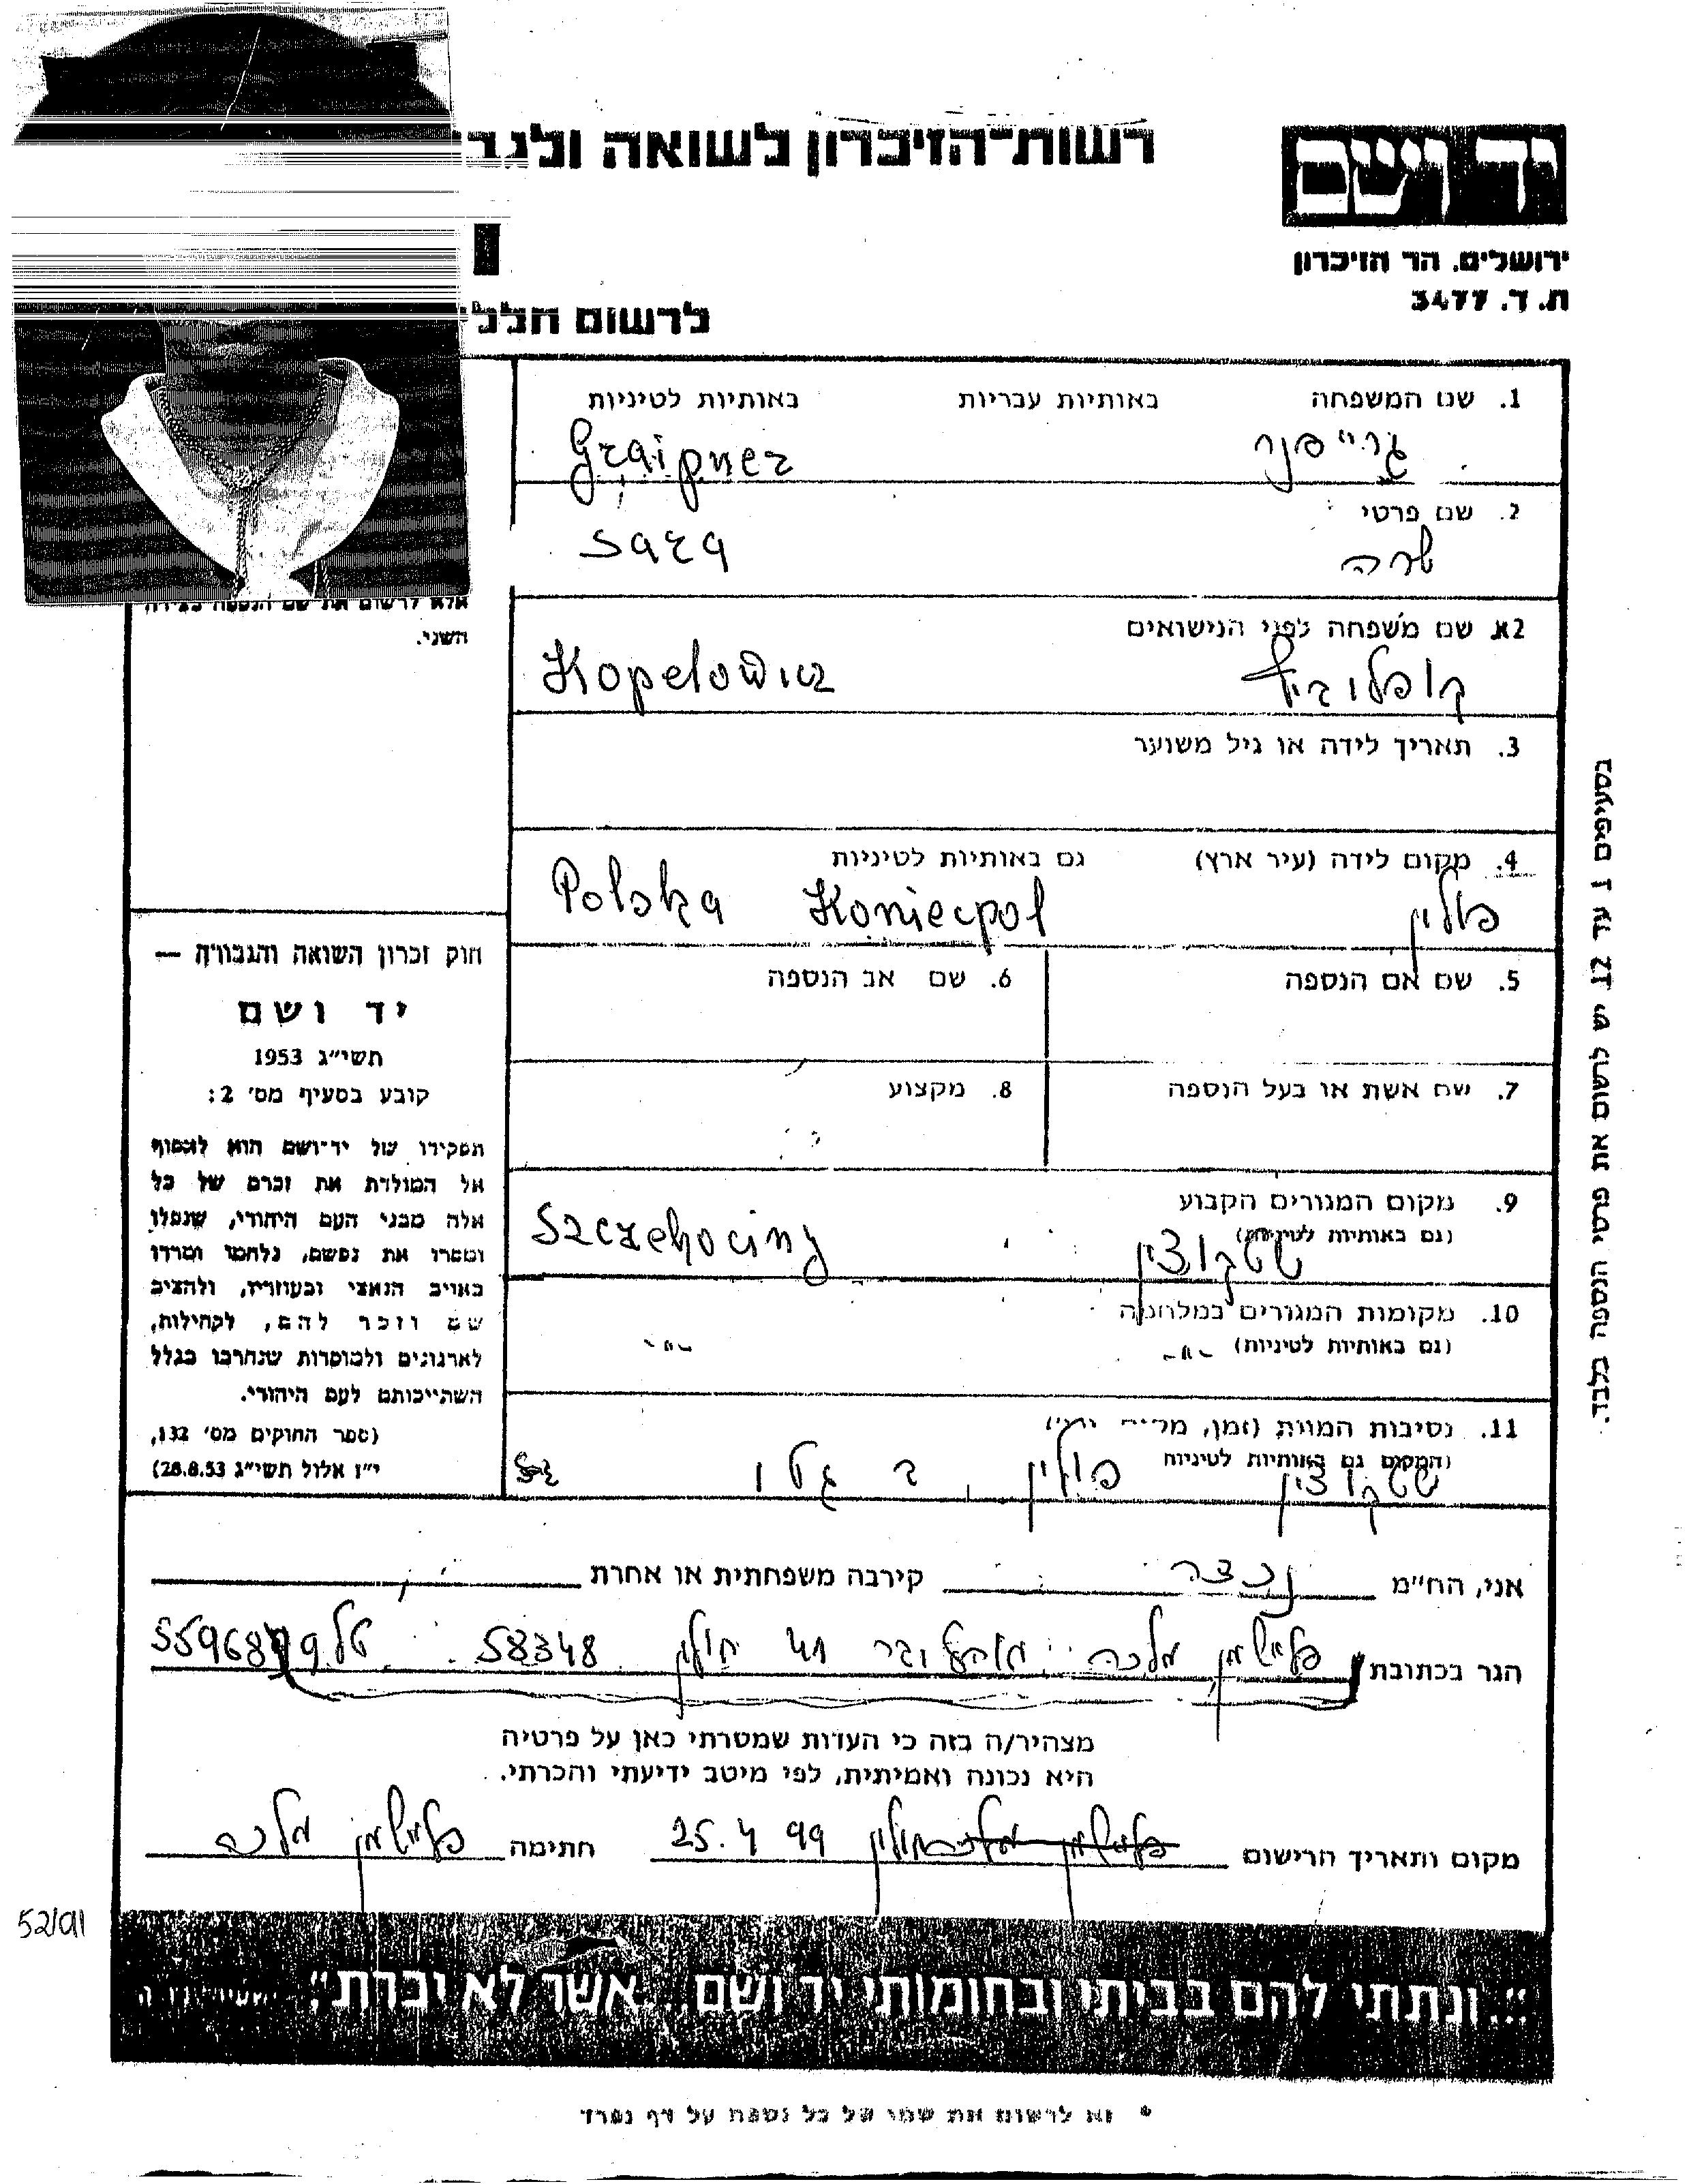 רשות־הזיכרון לשואה ולגב
יד ושם
ירושלים, הר הזיכרון
ת. ד. 3477
לרשום חללי
1. שם המשפחה באותיות עבריות באותיות לטיניות
גרייפנר Graipner
2. שם פרטי
שרה Sara
2א שם משפחה לפני הנישואים
קופלוביץ Kopelowicz
3. תאריך לידה או גיל משוער
4. מקום לידה (עיר ארץ) גם באותיות לטיניות
פולין Polska Koniecpol
5. שם אם הנספה 6. שם אב הנספה
7. שם אשת או בעל הנספה 8. מקצוע
9. מקום המגורים הקבוע
(גם באותיות לטיניות)
שצקוצין Szczekociny
10. מקומות המגורים במלחמה
(גם באותיות לטיניות) -"- -"-
11. נסיבות המוות (זמן, מקום
(המקום גם באותיות לטיניות
פולין, בגטו
אלא לרשום את שם הנספה
השני.
חוק זכרון השואה והגבורה —
יד ושם
תשי״ג 1953
קובע בסעיף מס׳ 2:
תפקידו של יד־ושם הוא לאסוף
אל המולדת את זכרם של כל
אלה מבני העם היהודי, שנפלו
ומסרו את נפשם, נלחמו ומרדו
באויב הנאצי ובעוזריו, ולהציב
שם וזכר להם, לקהילות,
לארגונים ולמוסדות שנחרבו בגלל
השתייכותם לעם היהודי.
(ספר החוקים מס׳ 132,
י״ז אלול תשי״ג 28.8.53)
בסעיפים 1 עד 12 יש לרשום את פרטי הנספה בלבד.
אני, הח״מ נכדה קירבה משפחתית או אחרת
הגר בכתובת פליישמן מלכה 41 חולון 58348 טל
מצהיר/ה בזה כי העדות שמסרתי כאן על פרטיה
היא נכונה ואמיתית, לפי מיטב ידיעתי והכרתי.
מקום ותאריך הרישום חולון 25.4 99 חתימה פליישמן מלכה
52/91
"...ונתתי להם בביתי ובחומותי יד ושם...אשר לא יכרת"
* נא לרשום את שמו של כל נספה על דף נפרד